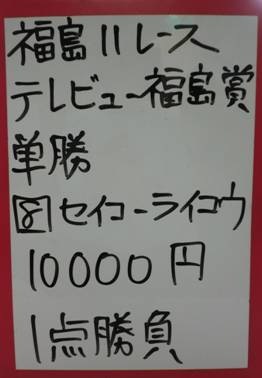 福島11レース
テレビュー福島賞
単勝
8 セイコーライコウ
10000円
1点勝負